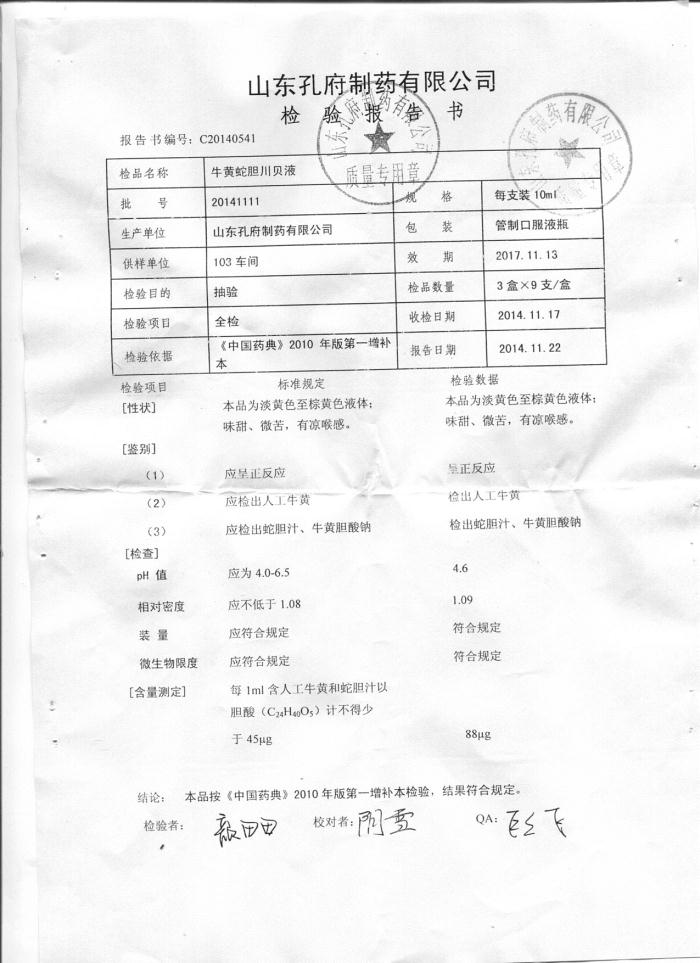 山东孔府制药有限公司
检验报告书
山东孔府制药有限公司
质量专用章
报告书编号：C20140541
检品名称 牛黄蛇胆川贝液
批 号 20141111 规 格 每支装 10ml
生产单位 山东孔府制药有限公司 包 装 管制口服液瓶
供样单位 103 车间 效 期 2017.11.13
检验目的 抽验 检品数量 3 盒×9 支/盒
检验项目 全检 收检日期 2014.11.17
检验依据 《中国药典》2010 年版第一增补本 报告日期 2014.11.22
检验项目 标准规定 检验数据
[性状] 本品为淡黄色至棕黄色液体； 本品为淡黄色至棕黄色液体；
味甜、微苦，有凉喉感。 味甜、微苦，有凉喉感。
[鉴别]
（1） 应呈正反应 呈正反应
（2） 应检出人工牛黄 检出人工牛黄
（3） 应检出蛇胆汁、牛黄胆酸钠 检出蛇胆汁、牛黄胆酸钠
[检查]
pH 值 应为 4.0-6.5 4.6
相对密度 应不低于 1.08 1.09
装 量 应符合规定 符合规定
微生物限度 应符合规定 符合规定
[含量测定] 每 1ml 含人工牛黄和蛇胆汁以
胆酸（C₂₄H₄₀O₅）计不得少
于 45μg 88μg
结论： 本品按《中国药典》2010 年版第一增补本检验，结果符合规定。
检验者： 校对者： QA：